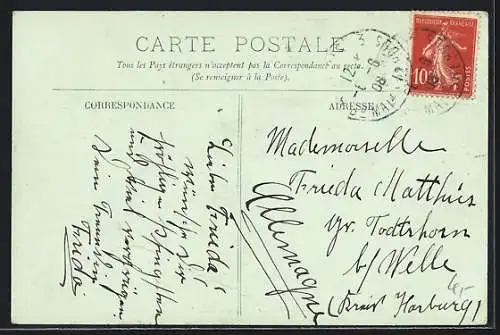 CARTE POSTALE
Tous les Pays étrangers n'acceptent pas la Correspondance au recto.
(Se renseigner à la Poste).
CORRESPONDANCE
ADRESSE
REPUBLIQUE FRANÇAISE
10
POSTES
08
Liebe Frieda!
Wünsche dir
fröhliche Pfingsten
und viel Vergnügen
Dein
Frieda
Mademoiselle
Frieda Matthies
Gr. Todtshorn
b/ Welle
(Kreis Harburg)
Allemagne